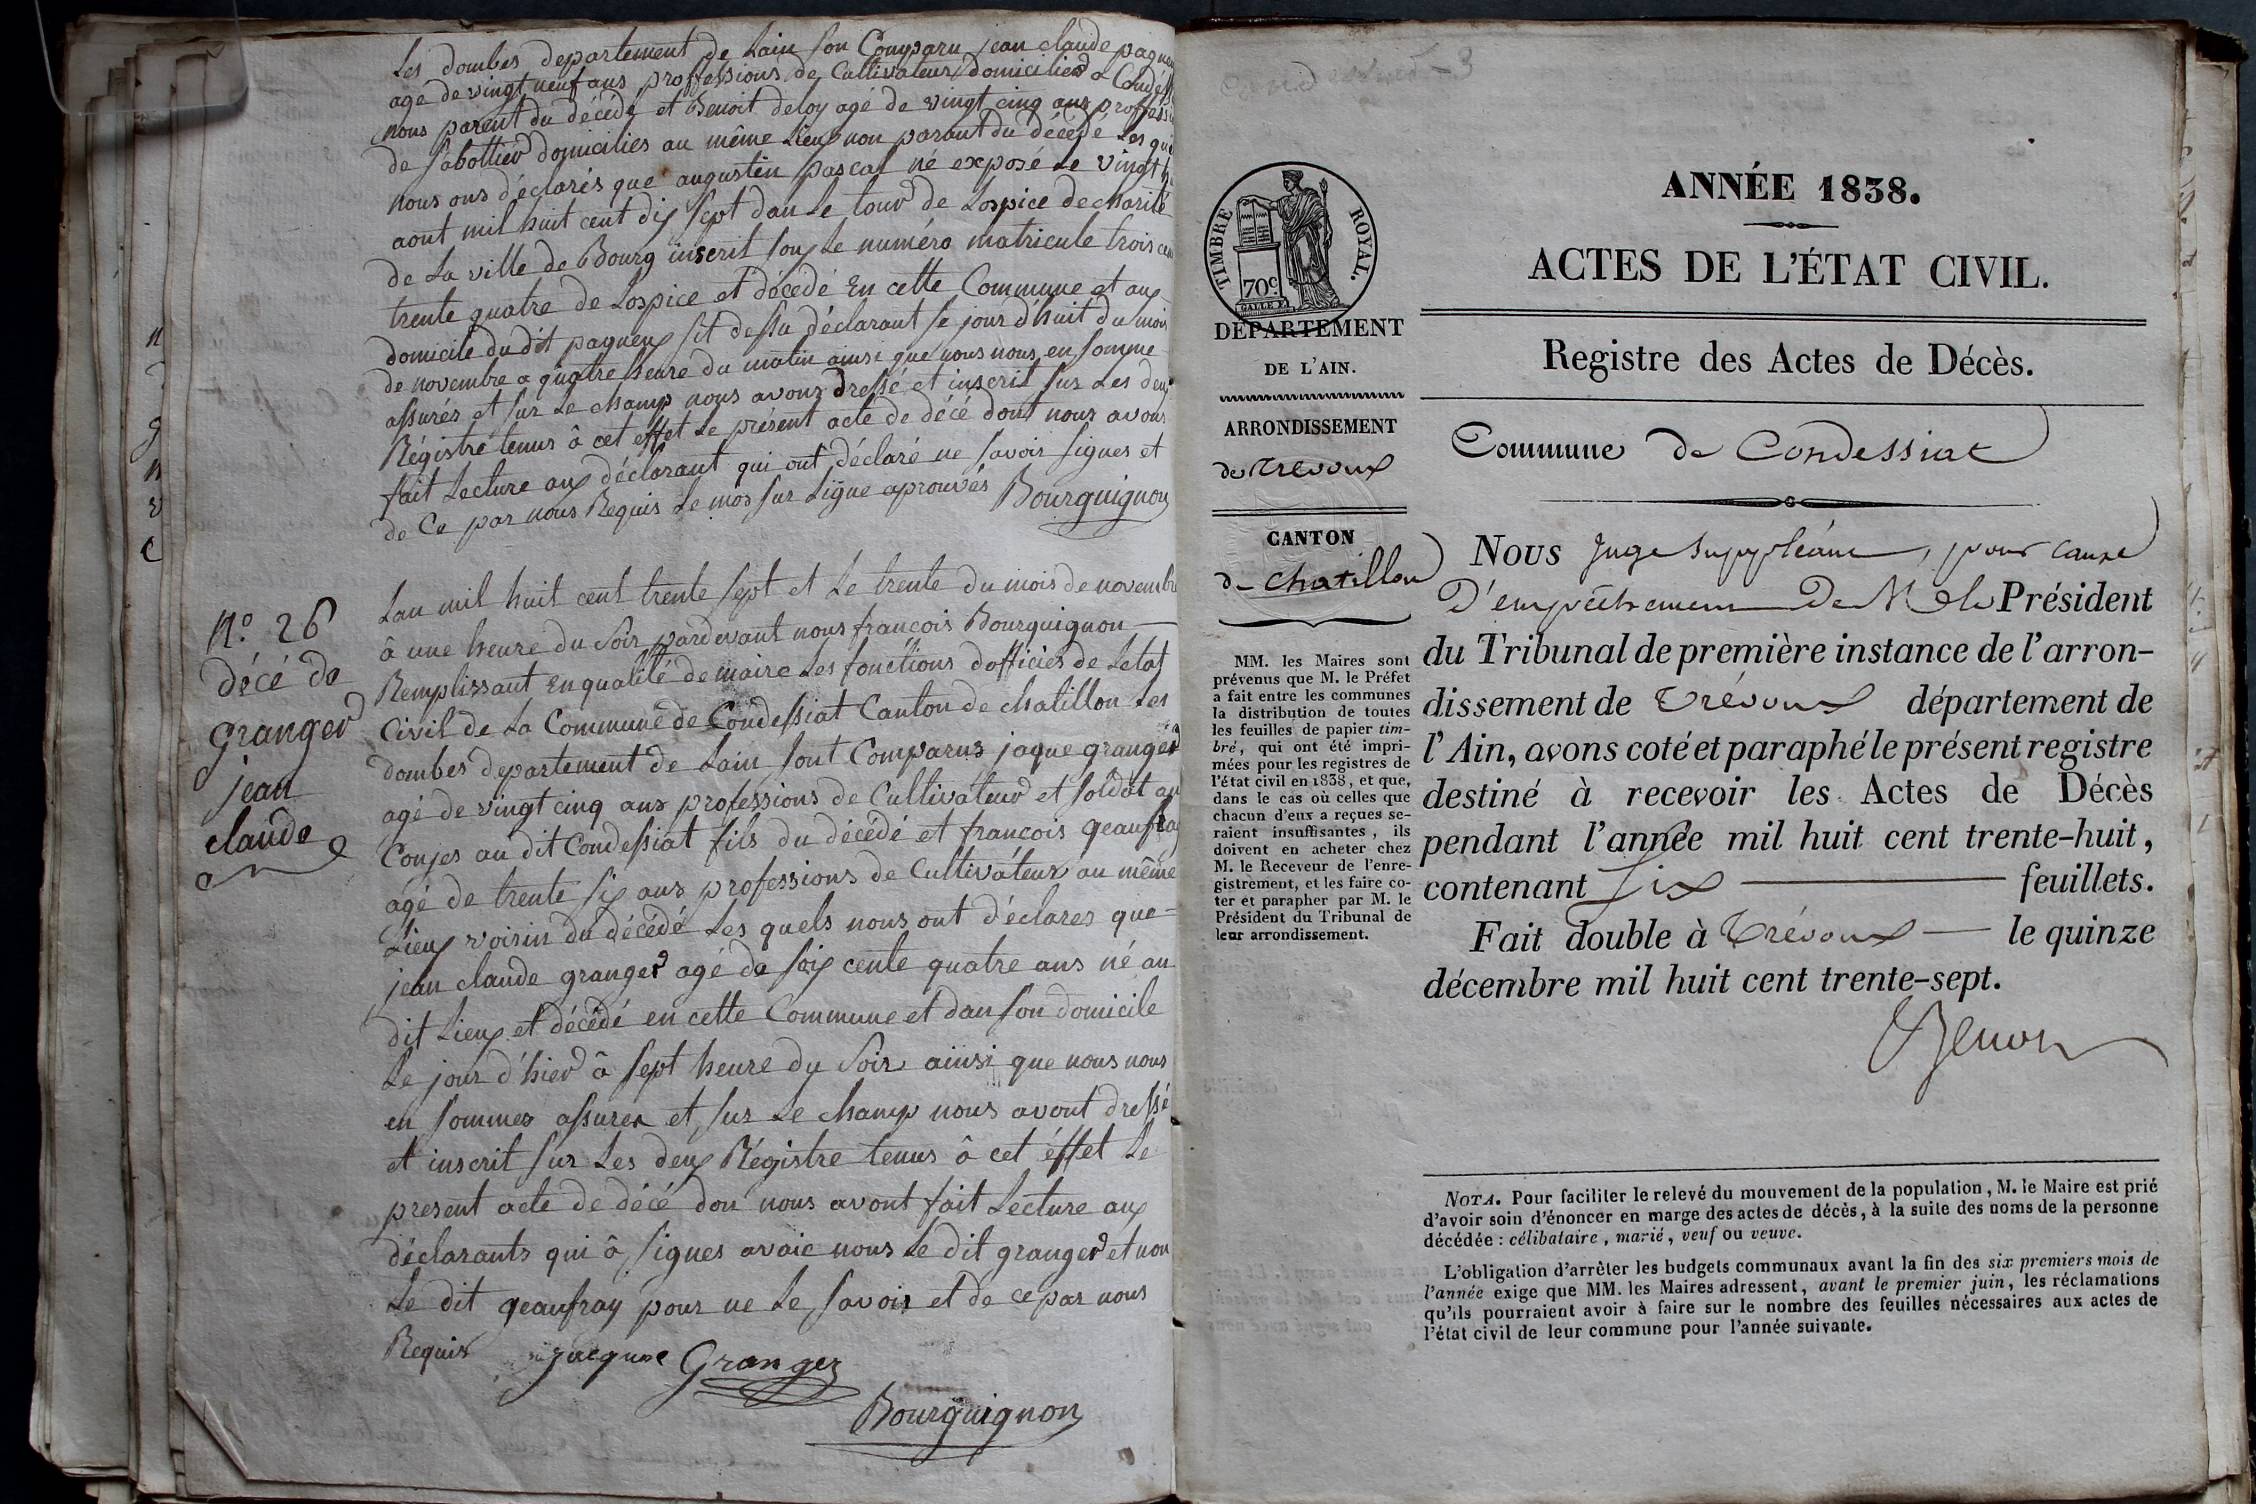 Les dombes departement de Lain son Comparu jean claude paqueu
age de vingt neuf ans professions de Cultivateur domicilies a Condess
nous parent du décédé et Benoit deloy agé de vingt cinq ans professi
de Sabottier domicilies au même Lieux non parant du décédé Les qu
nous ons déclarés que augustin pascal né exposé Le vingt h
aout mil huit cent dix sept dan Le tour de Lospice de charité
de La ville de Bourg inscrit sous Le numéro matricule trois cen
trente quatre de Lospice et décédé En cette Commune et au
domicile du dit paqueux sit dessu déclarant se jour d'huit du mois
de novembre a quatre heure du matin ainsi que nous nous en somme
assurés et sur Le champ nous avons dressé et inscrit sur Les deux
Régistre tenus â cet effet Le présent acte de décé dont nous avons
fait Lecture aux déclarant qui ont déclaré ne savoir signes et
de Ce par nous Requis Le mos sur Ligne aprouvés Bourguignon
N.º 26
décé de
Granger
jean
claude
Lan mil huit cent trente sept et Le trente du mois de novembre
â une heure du Soir pardevant nous françois Bourguignon
Remplissant En qualité de maire Les fonctions dofficies de Letat
Civil de La Commune de Condessiat Canton de chatillon Les
dombes departement de Lain sont Comparus jaque granger
agé de vingt cinq ans professions de Cultivateur et soldat an
Conjes au dit Condessiat fils du décédé et françois geaufray
agé de trente six ans professions de Cultivateur au même
Lieux voisin du décédé Les quels nous ont déclares que
jean claude granger agé de soix cente quatre ans né au
dit Lieux et décédé en cette Commune et dan son domicile
Le jour d'hier â sept heure du Soir ainsi que nous nous
en sommes assurer et sur Le champ nous avont dressé
et inscrit sur Les deux Régistre tenus â cet éffet Le
present acte de décé don nous avont fait Lecture aux
déclarants qui â signes avaic nous Le dit granger et non
Le dit geaufray pour ne Le savoir et de ce par nous
Requis jacque Granger
Bourguignon
ANNÉE 1838.
ACTES DE L'ÉTAT CIVIL.
Registre des Actes de Décès.
Commune de Condessiat
TIMBRE ROYAL.
70c
DÉPARTEMENT
DE L'AIN.
ARRONDISSEMENT
de Trévoux
CANTON
de chatillon
MM. les Maires sont
prévenus que M. le Préfet
a fait entre les communes
la distribution de toutes
les feuilles de papier tim-
bré, qui ont été impri-
mées pour les registres de
l'état civil en 1838, et que,
dans le cas où celles que
chacun d'eux a reçues se-
raient insuffisantes, ils
doivent en acheter chez
M. le Receveur de l'enre-
gistrement, et les faire co-
ter et parapher par M. le
Président du Tribunal de
leur arrondissement.
Nous Juge Suppléant, pour cause
D'empêchement De M. le Président
du Tribunal de première instance de l'arron-
dissement de Trévoux département de
l'Ain, avons coté et paraphé le présent registre
destiné à recevoir les Actes de Décès
pendant l'année mil huit cent trente-huit,
contenant Six feuillets.
Fait double à Trévoux le quinze
décembre mil huit cent trente-sept.
NOTA. Pour faciliter le relevé du mouvement de la population, M. le Maire est prié
d'avoir soin d'énoncer en marge des actes de décès, à la suite des noms de la personne
décédée : célibataire, marié, veuf ou veuve.
L'obligation d'arrêter les budgets communaux avant la fin des six premiers mois de
l'année exige que MM. les Maires adressent, avant le premier juin, les réclamations
qu'ils pourraient avoir à faire sur le nombre des feuilles nécessaires aux actes de
l'état civil de leur commune pour l'année suivante.